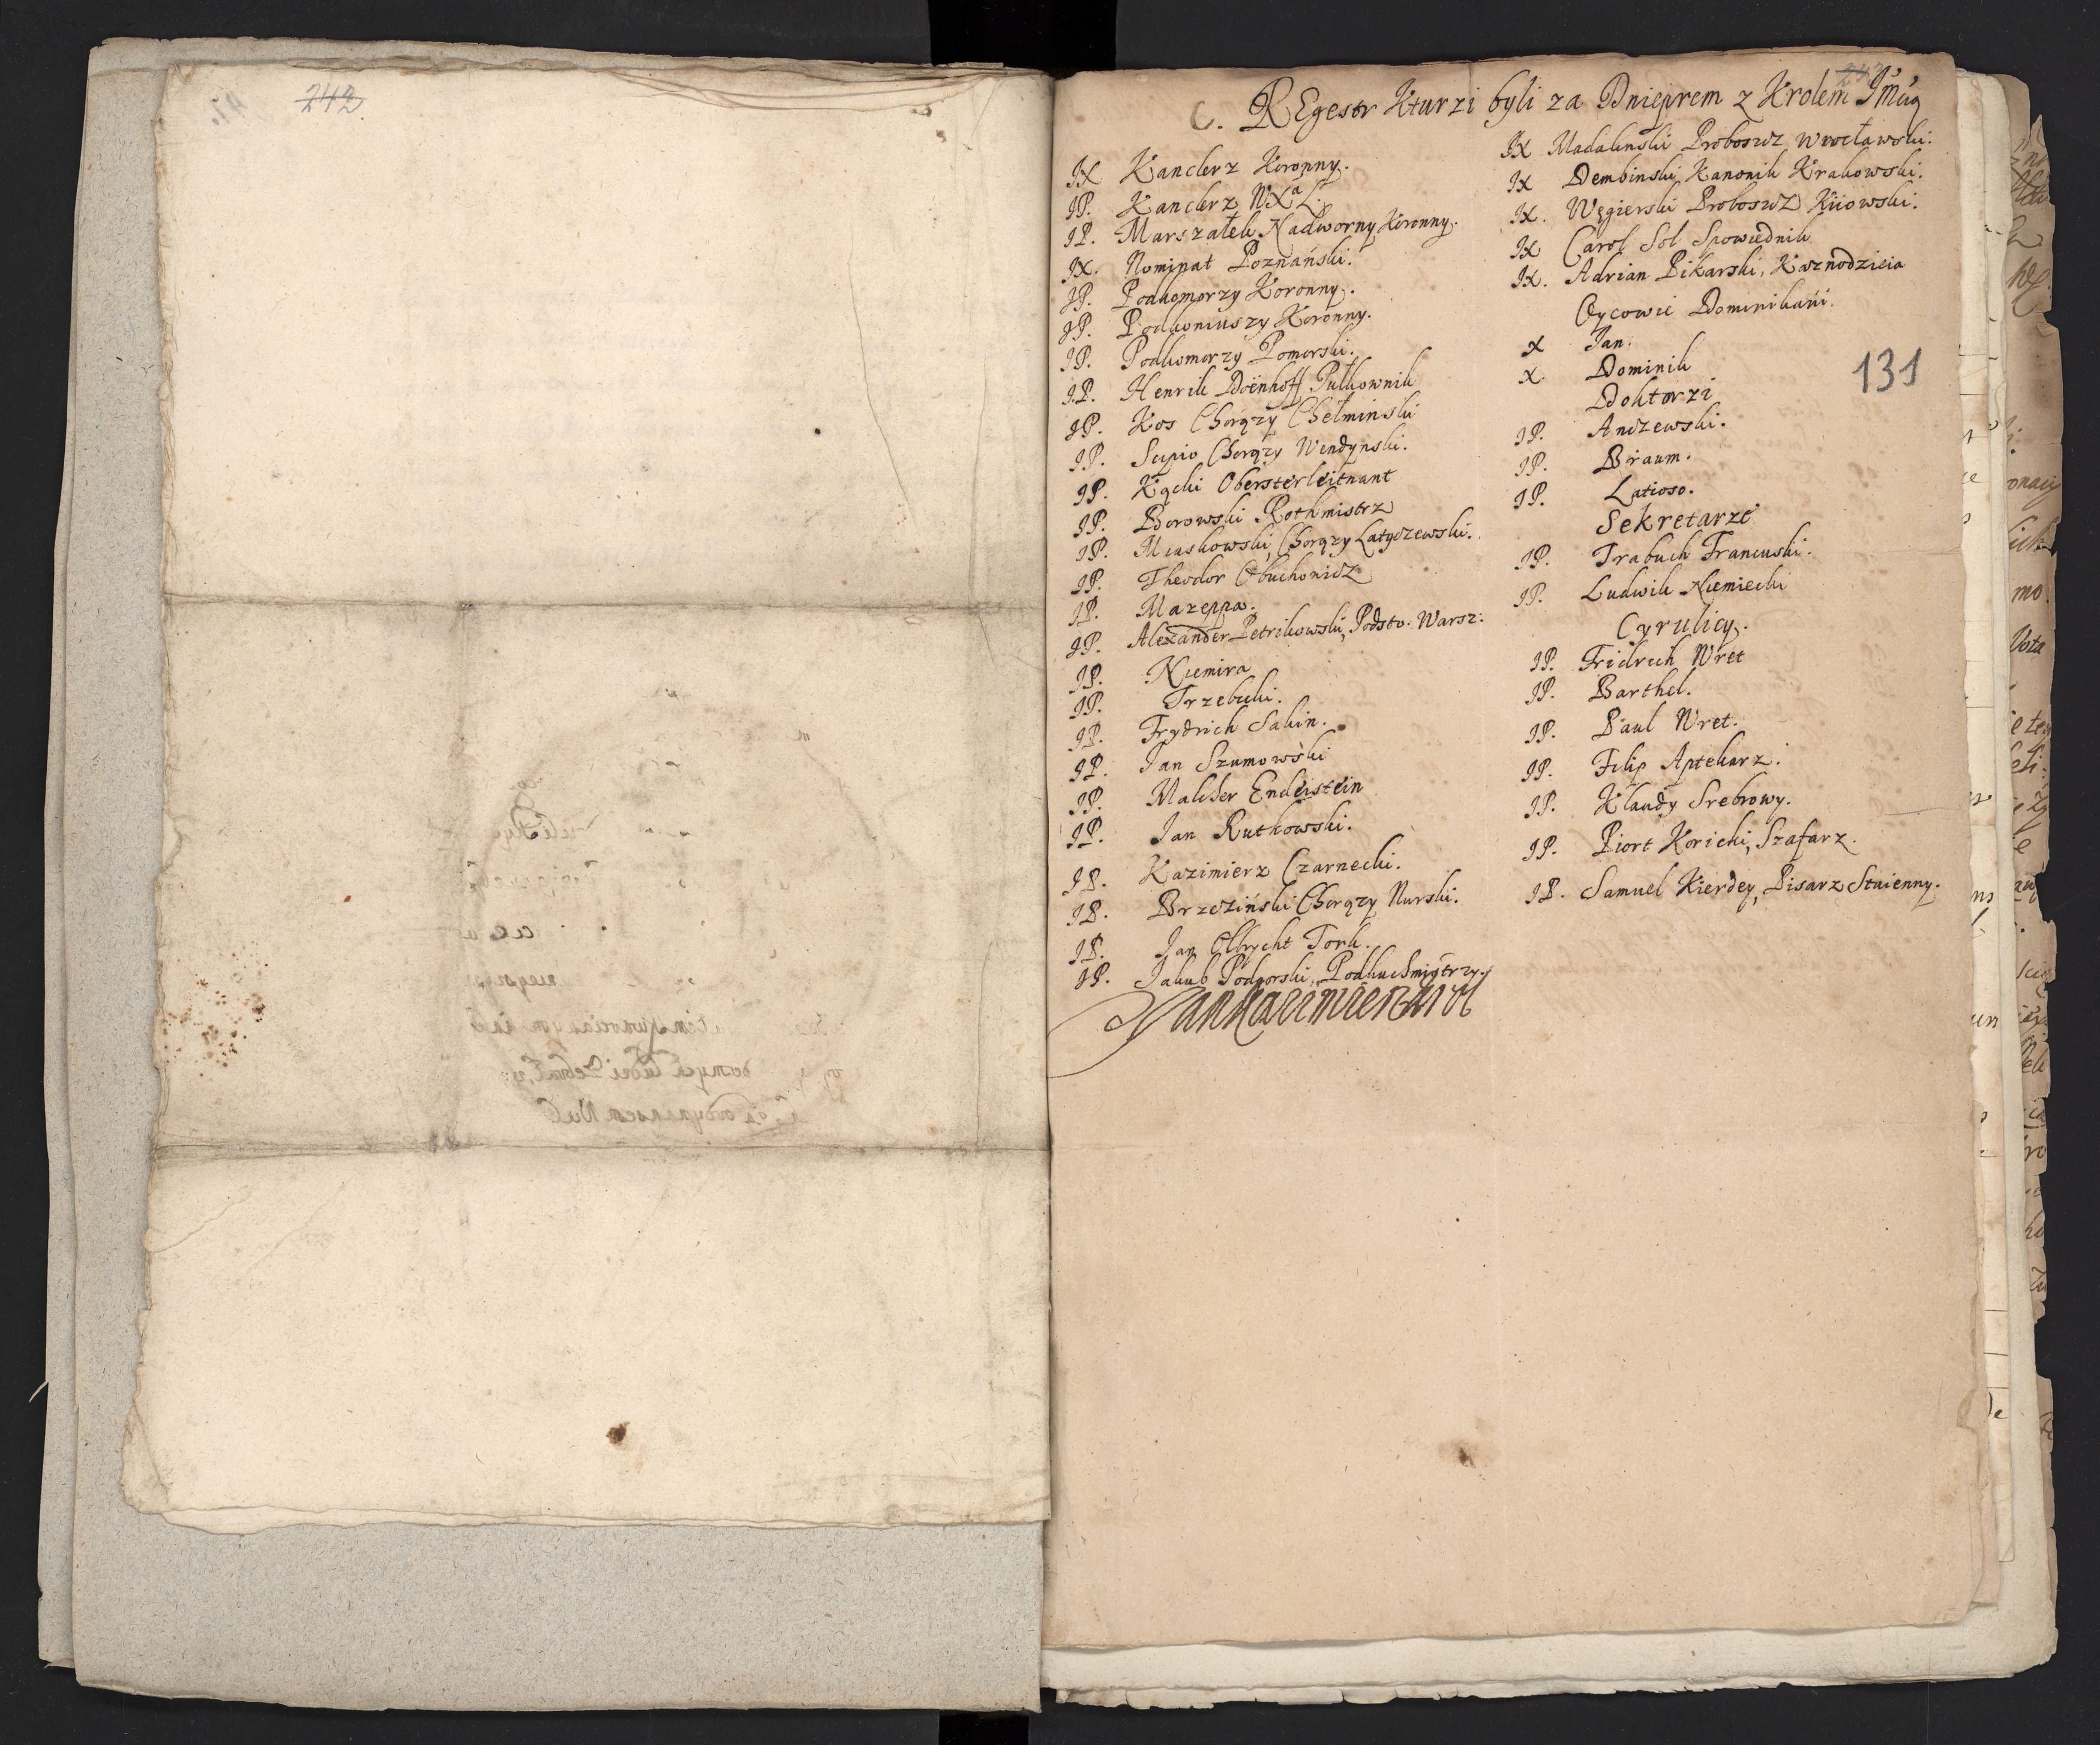 242.
243
C. REgestr Kturzi byli za Dnieprem z Krolem Jmcią
131
JX Kanclerz Koronny.
JP. Kanclerz WXa Lo.
JP. Marszałek Nadworny Koronny.
JX. Nominat Poznański.
JP. Podkomorzy Koronny.
JP. Podkoniuszy Koronny.
JP. Podkomorzy Pomorski.
JP. Henrik Doenhoff Pułkownik
JP. Kos Chorązy Chełminski
JP. Scipio Chorązy Wendynski.
JP. Kącki Obersterleitnant
JP. Borowski Rothmistrz
JP. Miaskowski, Chorązy Latyczewski.
JP. Theodor Obuchowicz
JP. Mazeppa.
JP. Alexander Petrikowski, Podsto: Warsz:
JP. Niemira
JP. Trzebicki.
JP. Frydrich Sakin.
JP. Jan Szumowski
JP. Malcher Endeistein
JP. Jan Rutkowski.
JP. Kazimierz Czarnecki.
JP. Brzeziński Chorązy Nurski.
JP. Jan Olbrycht Tork.
JP. Jakub Podgorski, Podkuchmistrzy.
Jan Kazimierz Krol
JX Madalinski Proboszcz Wrocławski.
JX Dembinski, Kanonik Krakowski.
JX. Węgierski Proboszcz Kiiowski.
JX Carol Sol Spowiednik
JX. Adrian Pikarski, Kaznodzieia
Oycowie Dominikani.
X Jan.
X. Dominik
Doktorzi
JP. Anczewski.
JP. Braum.
JP. Latioso.
Sekretarze
JP. Trabuch Francuski.
JP. Ludwik Niemiecki
Cyrulicy.
JP. Fridrich Wret
JP. Barthel.
JP. Paul Wret.
JP. Filip Aptekarz.
JP. Klaudy Srebrowy.
JP. Piort Koricki, Szafarz.
JP. Samuel Kierdey, Pisarz Staienny.